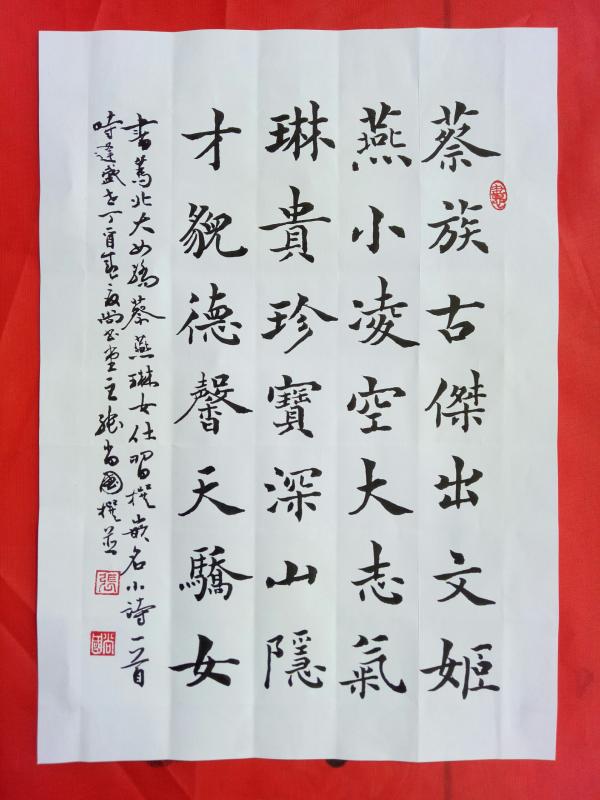 蔡族古傑出文姬
燕小凌空大志氣
琳貴珍寶深山隱
才貌德馨天驕女
書蔦北大女驕蔡燕琳女仕習撰嵌名小詩一首
時逢盛世丁酉年夜尚書堂主張尚國撰并
張
尚國